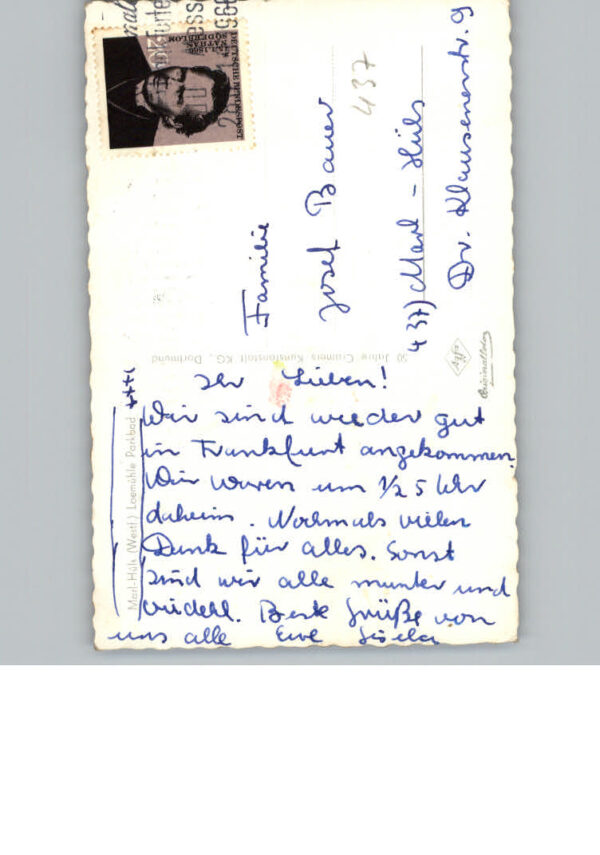 Ihr Lieben!
Wir sind wieder gut
in Frankfurt angekommen.
Wir waren um 1/2 5 Uhr
daheim. Nochmals vielen
Dank für alles. Sonst
sind wir alle munter und
fidell. Beste Grüße von
uns alle Eure Gisela
Familie
Josef Bauer
437) Marl - Hüls
Dr. Klausenerstr. 9
437
Marl-Hüls (Westf.) Loemühle Parkbad
50 Jahre Cramers Kunstanstalt KG., Dortmund
Agfa
DEUTSCHE BUNDESPOST
NATHAN
SÖDERBLOM